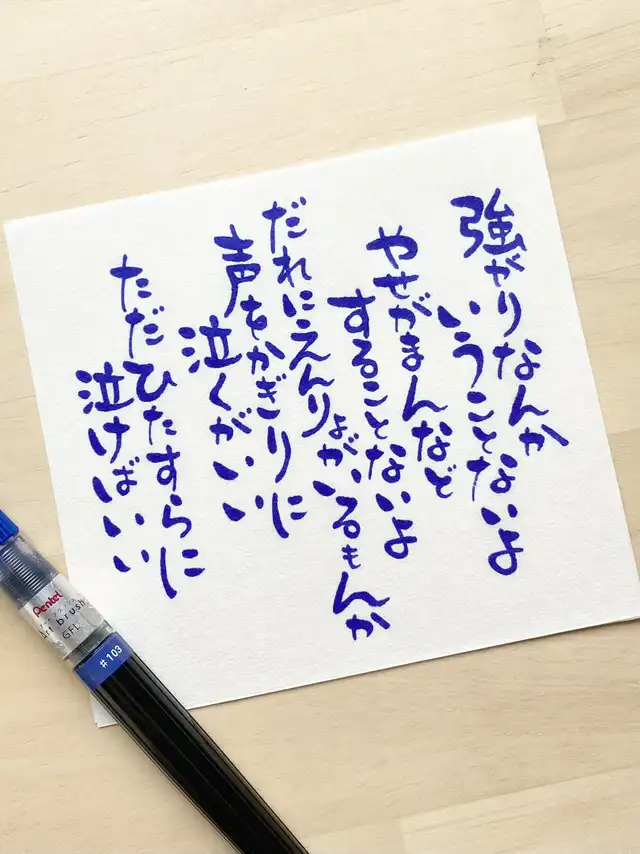 強がりなんか
いうことないよ
やせがまんなど
することないよ
だれにえんりょがいるもんか
声をかぎりに
泣くがいい
ただひたすらに
泣けばいい
Pentel
Art brush
GFL
#103